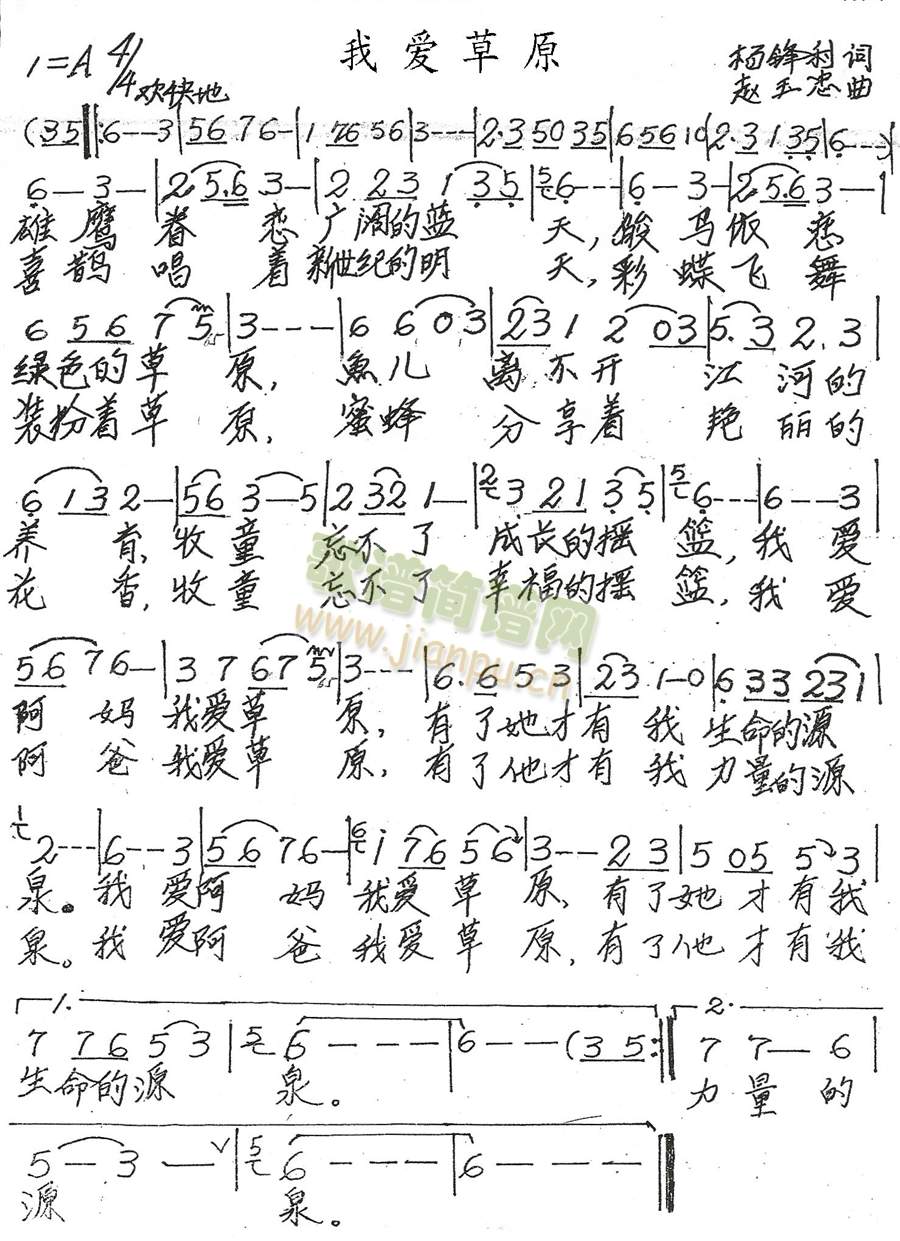 我爱草原
1=A 4/4 欢快地
杨锋利 词
赵玉忠 曲
(35‖:6--3|56 7 6-|1 76 5 6|3---|2·3 50 35|6 56 1 0|2·3 1 35|6---)
6-3-|2 5·6 3-|2 23 1 35|6---|6-3-|2·56 3-|
雄鹰眷恋广阔的蓝天,骏马依恋
喜鹊唱着新世纪的明天,彩蝶飞舞
6 56 7 5|3---|6 6 0 3|23 1 2 03|5·3 2·3|
绿色的草原,鱼儿离不开江河的
装扮着草原,蜜蜂分享着艳丽的
6 13 2-|56 3-5|2 32 1-|3 21 35|6---|6--3|
养育,牧童忘不了成长的摇篮,我爱
花香,牧童忘不了幸福的摇篮,我爱
歌谱简谱网
www.jianpu.cn
56 7 6-|3 7 67 5|3---|6·6 5 3|23 1-0|6 33 231|
阿妈我爱草原,有了她才有我生命的源
阿爸我爱草原,有了他才有我力量的源
2---|6--3|56 7 6-|i 76 5 6|3--23|5 05 5 3|
泉。我爱阿妈我爱草原,有了她才有我
泉。我爱阿爸我爱草原,有了他才有我
1. 2.
7 76 5 3|6---|6--(35:‖7 7-6
生命的源泉。力量的
5-3-|6---|6---‖
源泉。